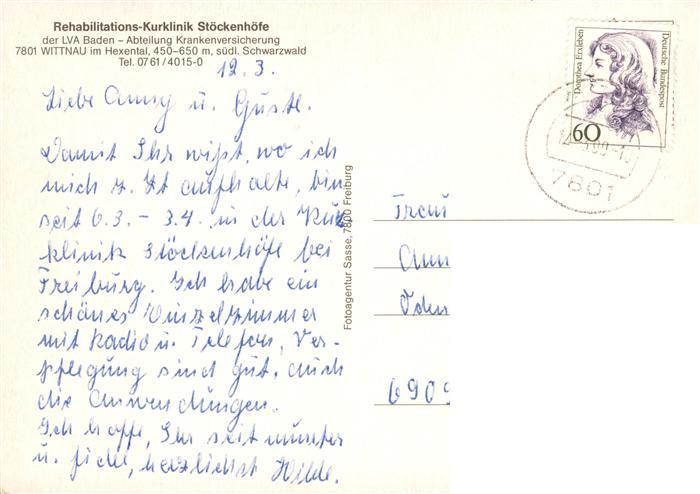 Rehabilitations-Kurklinik Stöckenhöfe
der LVA Baden – Abteilung Krankenversicherung
7801 WITTNAU im Hexental, 450–650 m, südl. Schwarzwald
Tel. 07 61 / 4015-0
12.3.
Liebe Anny u. Guste.
Damit Ihr wißt, wo ich
mich z. Zt aufhalte, bin
seit 6.3. – 3.4. in der Kur
klinik Stöckenhöfe bei
Freiburg. Ich habe ein
schönes Einzelzimmer
mit Radio u. Telefon, Ver-
pflegung sind gut, auch
die Anwendungen.
Ich hoffe, Ihr seit munter
u. fidel, herzlichst Hilde.
Fotoagentur Sasse, 7800 Freiburg
Dorothea Erxleben
Deutsche Bundespost
60
7801
Frau
Ann
Oden
6909